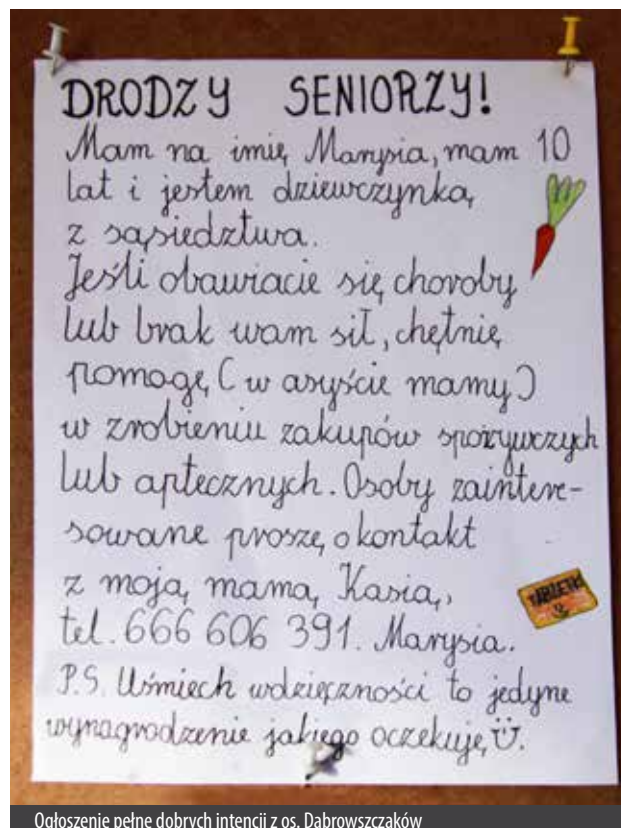 DRODZY SENIORZY!
Mam na imię Marysia, mam 10
lat i jestem dziewczynką
z sąsiedztwa.
Jeśli obawiacie się choroby
lub brak wam sił, chętnię
pomogę (w asyście mamy)
w zrobieniu zakupów spożywczych
lub aptecznych. Osoby zaintere-
sowane proszę o kontakt
z moją mamą Kasią,
TABLETKI
tel. 666 606 391. Marysia.
P.S. Uśmiech wdzięczności to jedyne
wynagrodzenie jakiego oczekuję Ü.
Ogłoszenie pełne dobrych intencji z os. Dąbrowszczaków